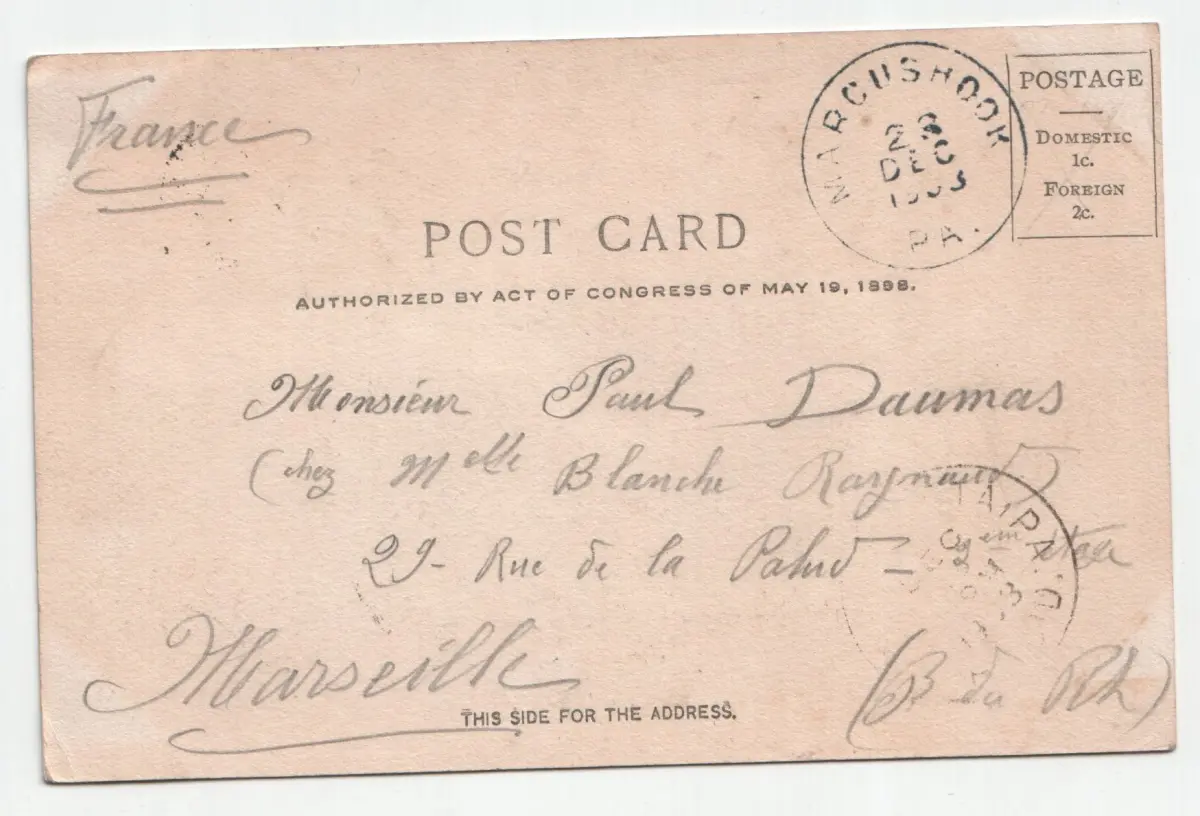 France
MARCUS HOOK
DEC
PA.
POSTAGE
DOMESTIC
1c.
FOREIGN
2c.
POST CARD
AUTHORIZED BY ACT OF CONGRESS OF MAY 19, 1898.
Monsieur Paul Daumas
(chez Melle Blanche Raynaud)
29 - Rue de la Palud - 2em étage
PAID
Marseille
(B du Rh)
THIS SIDE FOR THE ADDRESS.